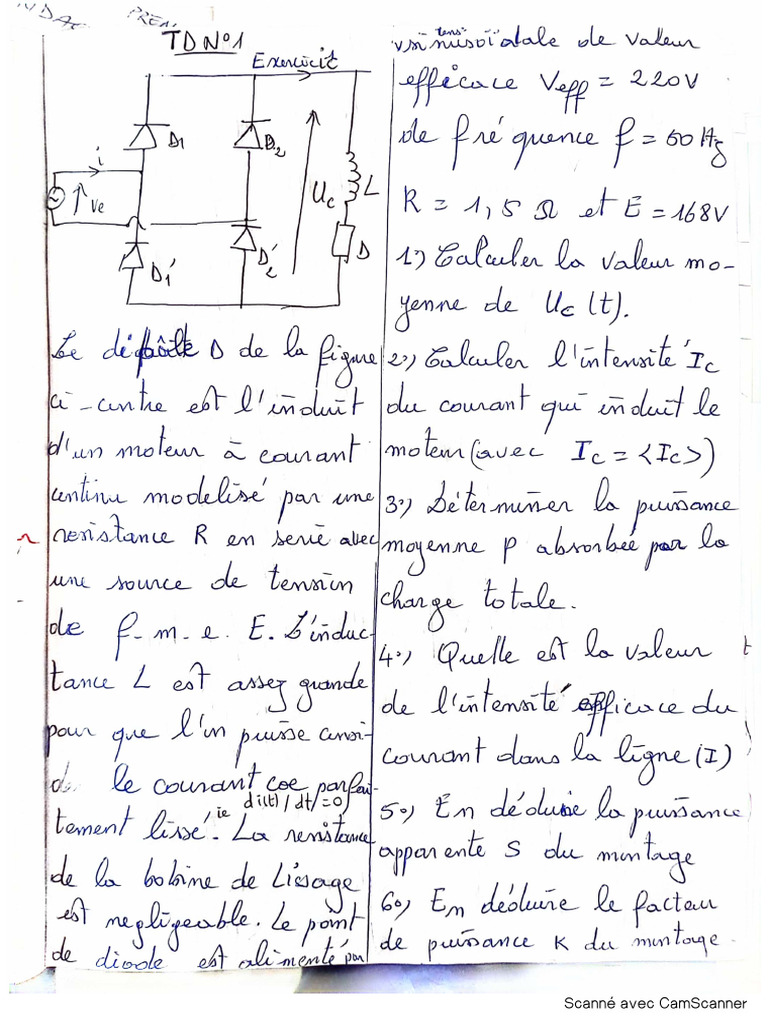 TD N°1
Exercice
D1
D2
i
Ve
Uc
L
D
D1'
D2'
Le dipôle D de la figure
ci-contre est l'induit
d'un moteur à courant
continu modelisé par une
resistance R en serie avec
une source de tension
de f.m.e. E. L'induc-
tance L est assez grande
pour que l'on puisse consi-
de le courant coe parfai-
ie di(t)/dt/=0)
tement lissé. La resistance
de la bobine de Lissage
est negligeable. Le pont
de diode est alimenté par
tens
sinusoïdale de valeur
efficace Veff = 220V
de fréquence f = 50 Hz
R = 1,5 Ω et E = 168V
1°) Calculer la valeur mo-
yenne de Uc (t).
2°) Calculer l'intensité Ic
du courant qui induit le
moteur (avec Ic = <Ic>)
3°) Déterminer la puissance
moyenne P absorbée par la
charge totale.
4°) Quelle est la valeur
de l'intensité efficace du
courant dans la ligne (I)
5°) En déduire la puissance
apparente S du montage
6°) En déduire le facteur
de puissance K du montage.
Scanné avec CamScanner